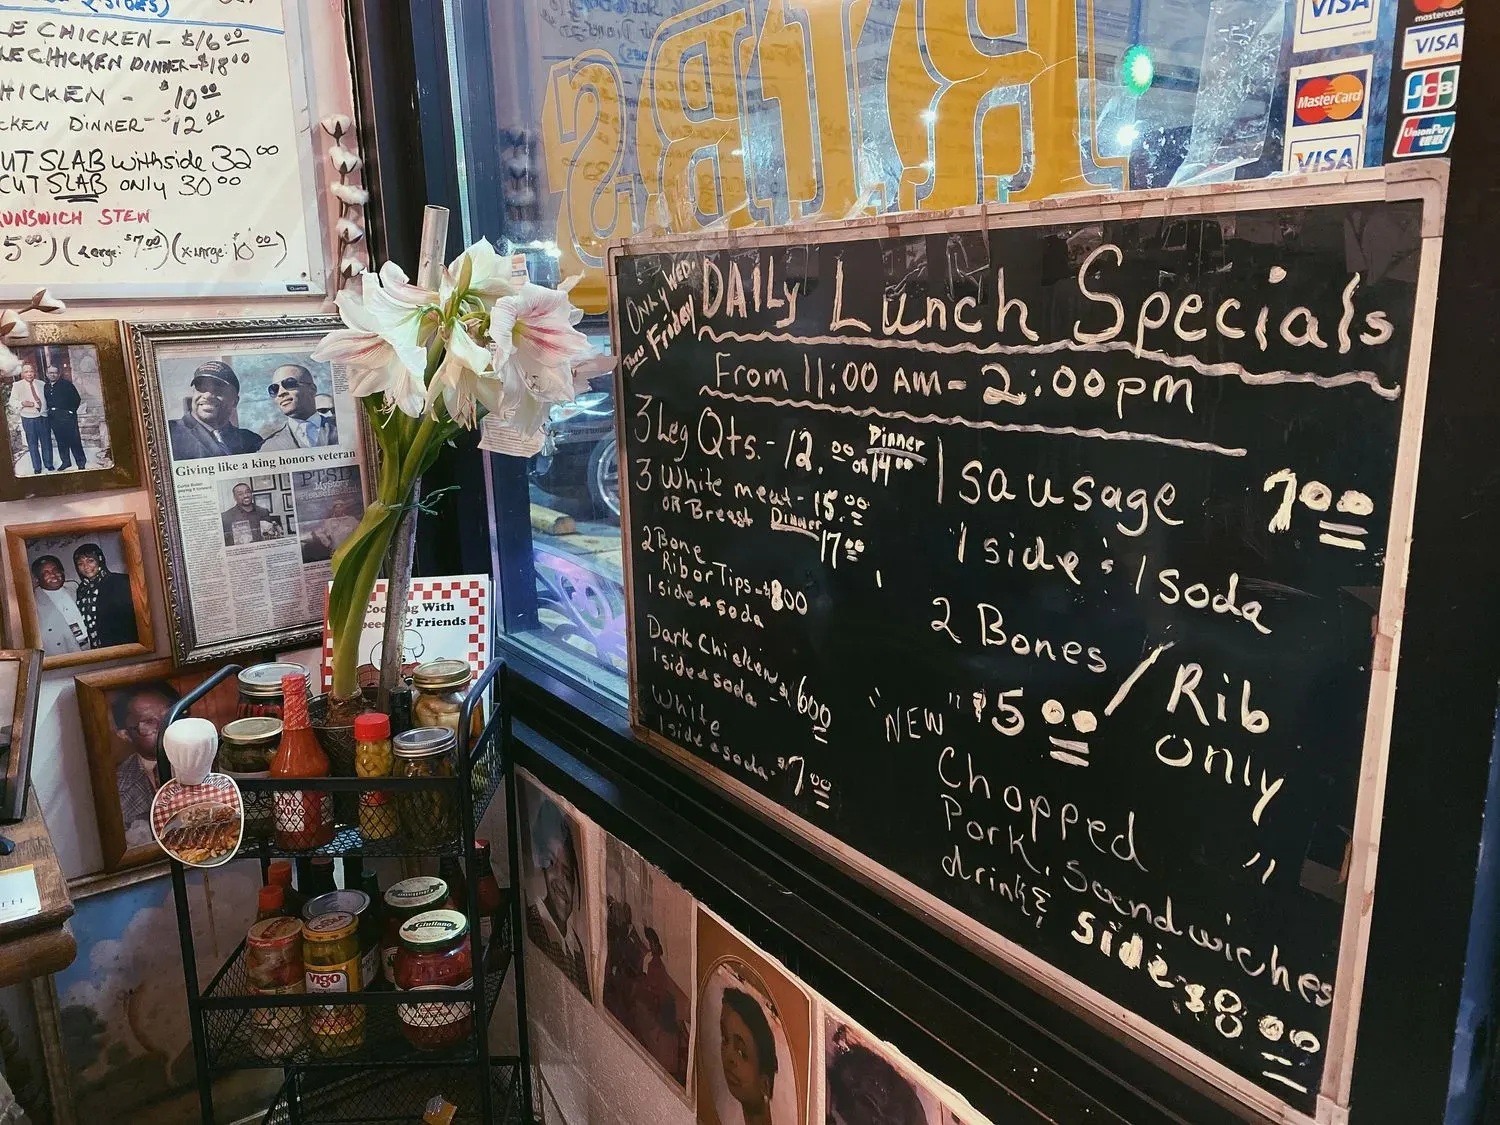 2 SIDES)
LE CHICKEN - $16.00
LE CHICKEN DINNER - $18.00
HICKEN - $10.00
CKEN DINNER - $12.00
UT SLAB with side 32.00
CUT SLAB only 30.00
UNSWICH STEW
5.00) (Large: $7.00) (X-Large: 10.00)
Giving like a king honors veteran
PTSD
My Story
Please Listen
Cooking With
& Friends
RIBS
VISA
mastercard
VISA
MasterCard
JCB
VISA
UnionPay
ONLY WED.
Thru Friday
DAILY Lunch Specials
From 11:00 AM - 2:00pm
3 Leg Qts. - 12.00 or Dinner 14.00
3 White meat - 15.00
OR Breast Dinner 17.00
2 Bone
Rib or Tips - $8.00
1 side + soda
Dark Chicken
1 side + soda $6.00
White
1 side + soda - $7.00
1 sausage 7.00
1 side & 1 soda
2 Bones / Rib
"NEW" $5.00 only
Chopped
Pork, Sandwiches
drink & side $8.00
"
Hot
Sauce
Vigo
Giuliano